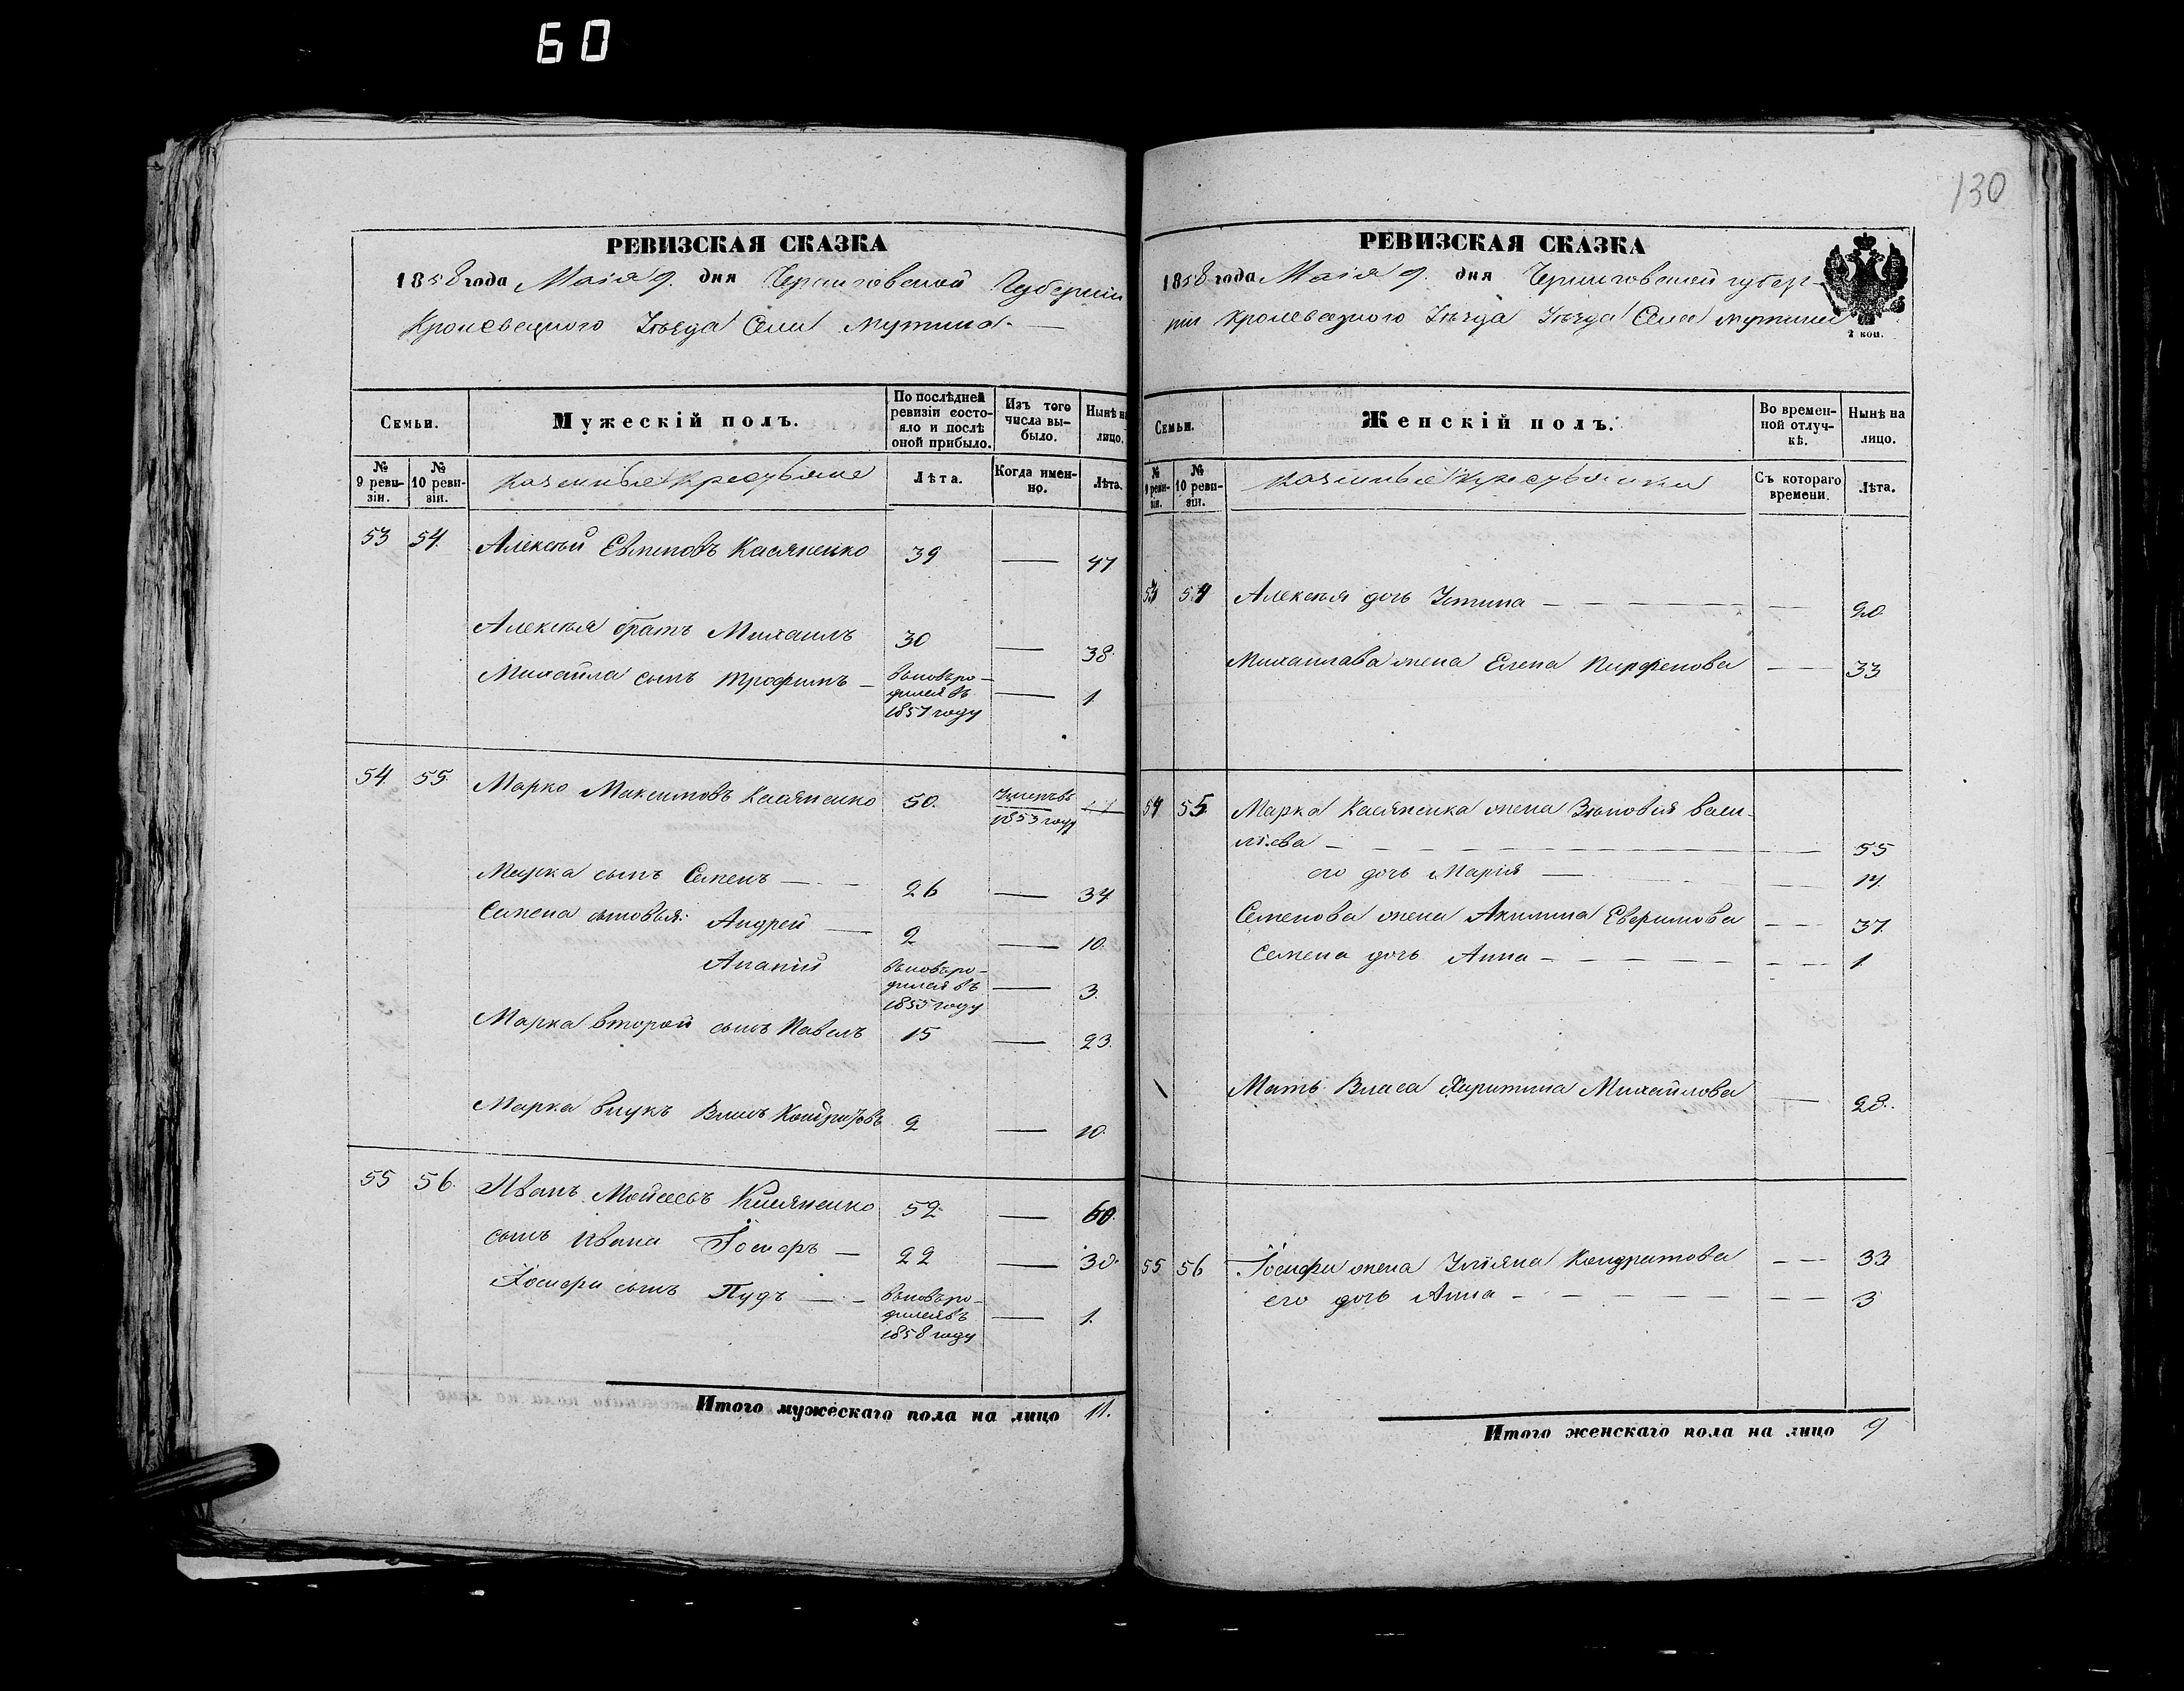 60
130
РЕВИЗСКАЯ СКАЗКА
1858 года Маія 9. дня Черниговской Губерніи
Кролевецкого Уѣзда Села Мутина
Семьи.
Мужескій полъ.
По послѣдней ревизіи состо-
яло и послѣ оной прибыло.
Изъ того числа вы-
было.
Нынѣ на лицо.
№ 9 реви-
зіи.
№ 10 реви-
зіи.
Казенные Крестьяне
Лѣта.
Когда имен-
но.
Лѣта.
53 54. Алексѣй Касяненко 39 — 47
Алексѣя братъ Михаилъ 30 — 38.
Михайла сынъ Трофимъ — вновь ро-
дился въ — 1.
1857 году
54. 55. Марко Максимовъ Касяненко 50. Умеръ въ
1853 году
Марка сынъ Семенъ — 26 — 34
Семена сыновья: Андрей — 2 — 10.
Ананій вновь ро-
дился въ — 3.
1855 году
Марка второй сынъ Павелъ 15 — 23.
Марка внукъ Власъ Кондратовъ 2 — 10.
55 56. Иванъ Мойсеевъ Касяненко 52 — 60.
сынъ Ивана Іосифъ — 22 — 30.
Іосифа сынъ Пудъ — вновь ро-
дился въ — 1.
1858 году
Итого мужескаго пола на лицо 11.
РЕВИЗСКАЯ СКАЗКА
1858 года Маія 9. дня Черниговской губер-
ніи Кролевецкого Уѣзда Уѣзда Села Мутина
2 коп.
Семьи.
Женскій полъ.
Во времен-
ной отлуч-
кѣ.
Нынѣ на лицо.
№ 9 реви-
зіи.
№ 10 реви-
зіи.
Казенные Крестьянки
Съ котораго времени.
Лѣта.
53 54 Алексѣя дочь Устина — — 20
Михаилава жена Елена Парфенова — 33
54 55 Марка Касяненка жена Зѣновія Васи-
лiева — — 55
его дочь Марія — — 14.
Семенова жена Акилина Евфимова — 37.
Семена дочь Анна — — 1
Мать Власа Харитина Михайлова — 28.
55 56 Іосифа жена Уліяна Кондратова — 33
его дочь Анна — — 3
Итого женскаго пола на лицо 9